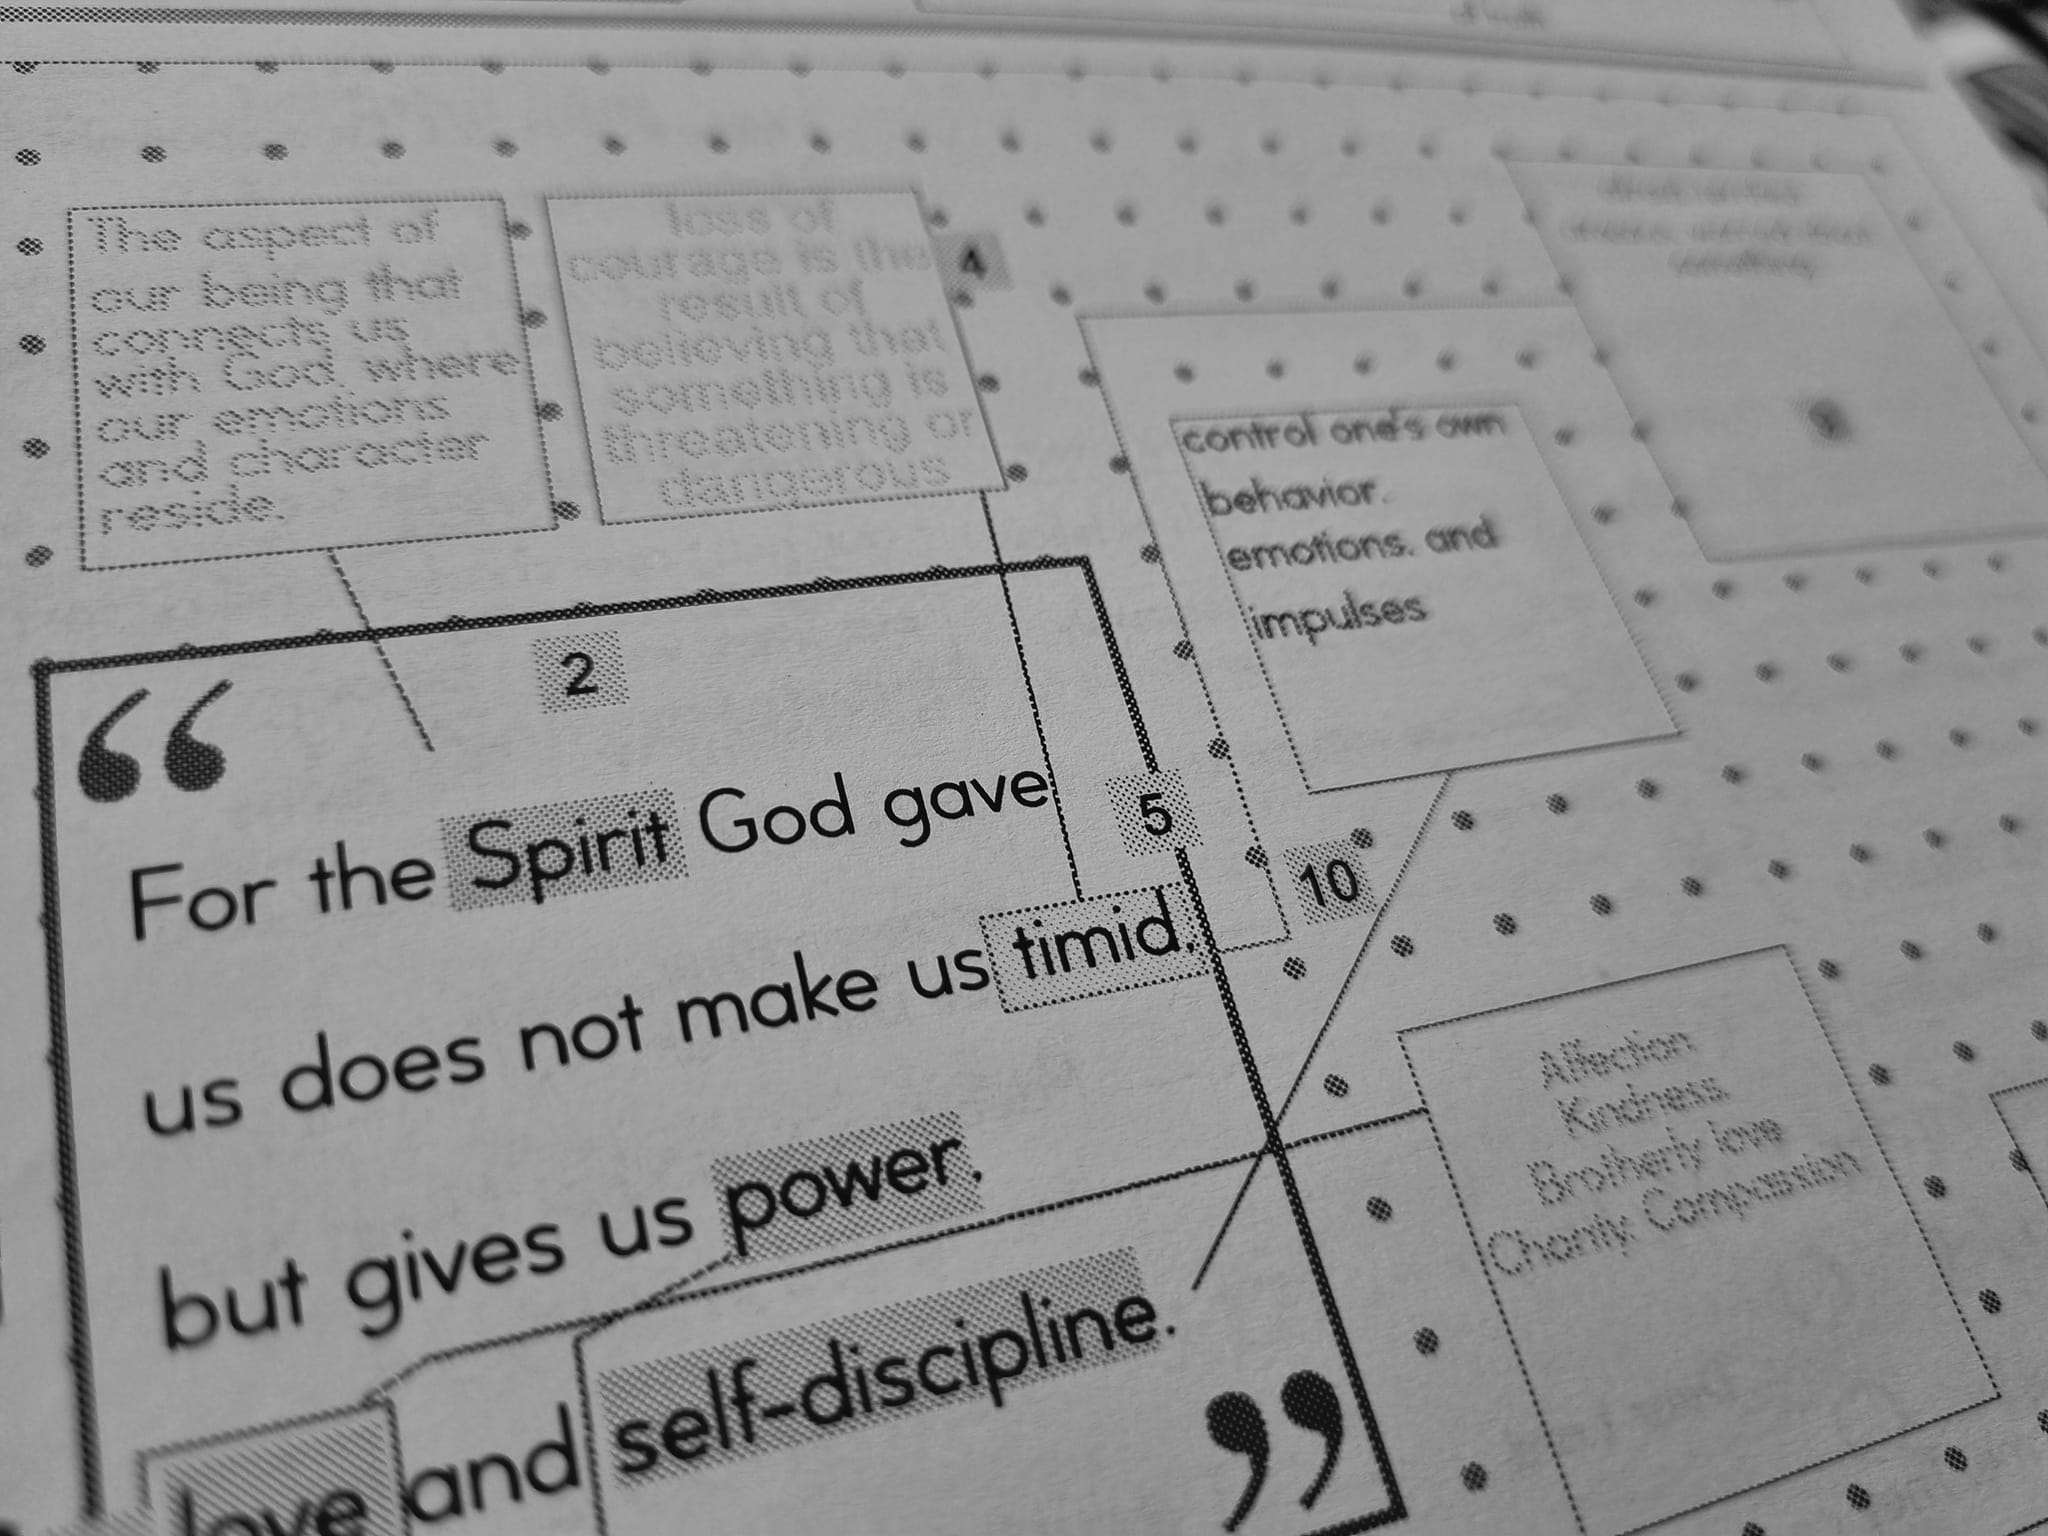 The aspect of
our being that
connects us
with God, where
our emotions
and character
reside.
loss of
courage is the
result of
believing that
something is
threatening or
dangerous
4
control one's own
behavior,
emotions, and
impulses
2
5
10
“
For the Spirit God gave
us does not make us timid,
but gives us power,
love and self-discipline.
”
Affection
Kindness,
Brotherly love
Charity, Compassion